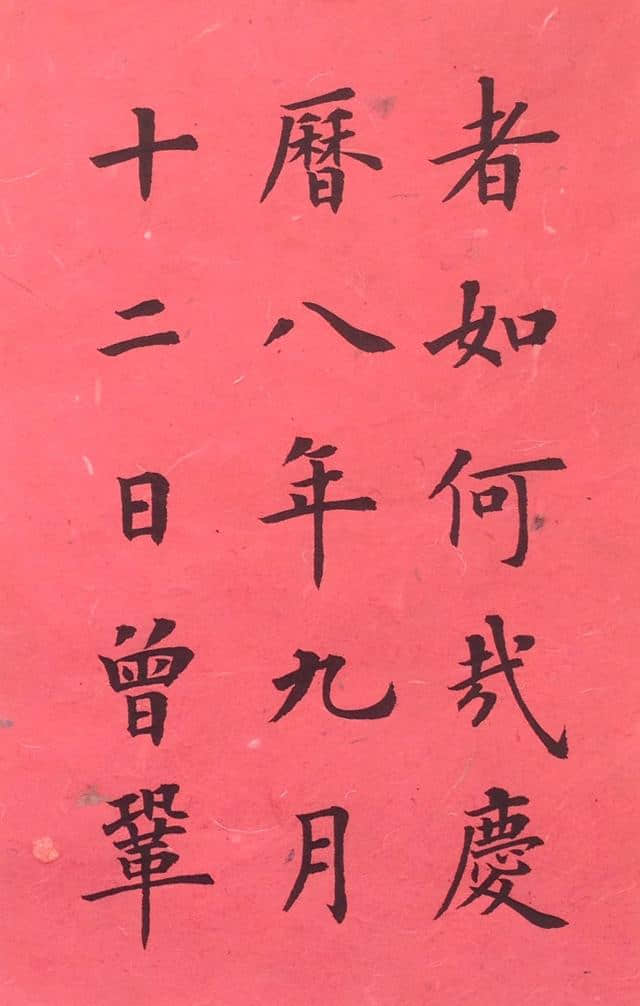 者如何哉慶
曆八年九月
十二日曾鞏